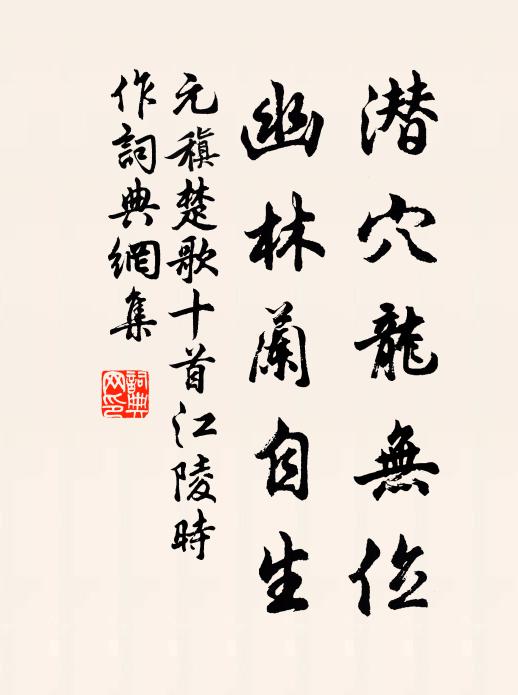 潜穴龍無位
幽林蘭自生
元稹楚歌十首江陵時
作詞典網集
詞典
网印